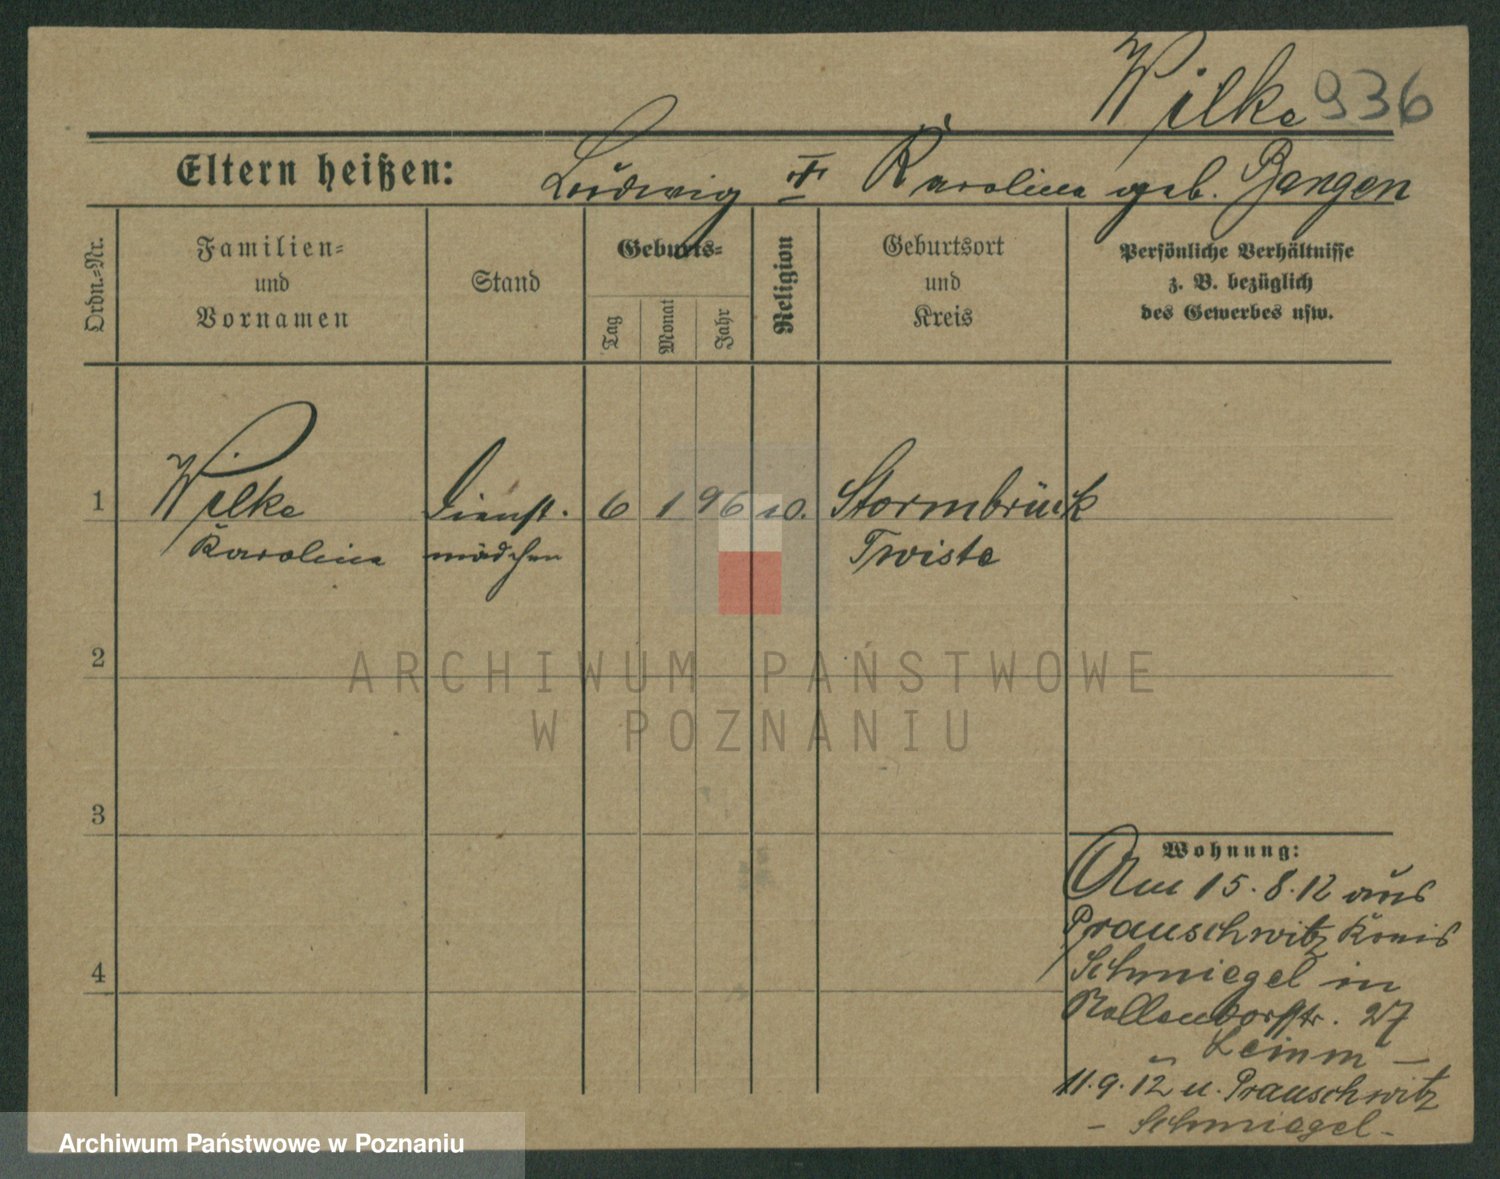 Wilke 936
Eltern heißen: Ludwig u. Karolina geb. Bangen
Ordn.-Nr.
Familien-
und
Vornamen
Stand
Geburts-
Tag
Monat
Jahr
Religion
Geburtsort
und
Kreis
Persönliche Verhältnisse
z. B. bezüglich
des Gewerbes usw.
1
Wilke
Karolina
Dienst-
mädchen
6 1 96
Stormbrück
Twiste
2
3
4
Wohnung:
Am 15.8.12 aus
Prauschwitz Kreis
Schmiegel in
Nollendorfstr. 27
11.9.12 n. Prauschwitz
- Schmiegel -
ARCHIWUM PAŃSTWOWE
W POZNANIU
Archiwum Państwowe w Poznaniu